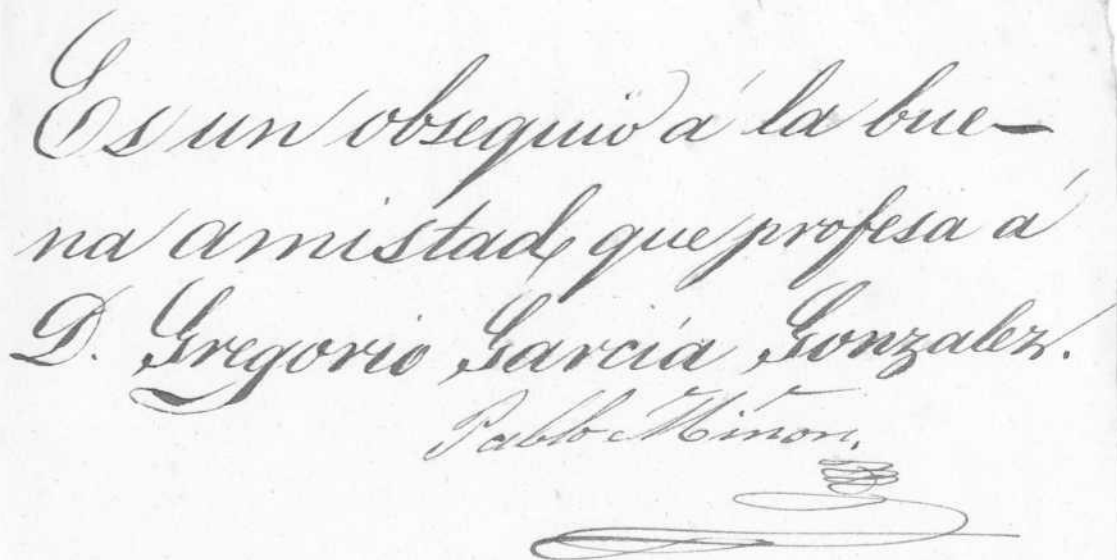 Es un obsequio á la bue-
na amistad, que profesa á
D. Gregorio García Gonzalez.
Pablo Miñon.